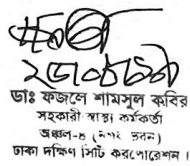 ডাঃ ফজলে শামসুল কবির
সহকারী স্বাস্থ্য কর্মকর্তা
অঞ্চল-৪ (নগর ভবন)
ঢাকা দক্ষিণ সিটি কর্পোরেশন।